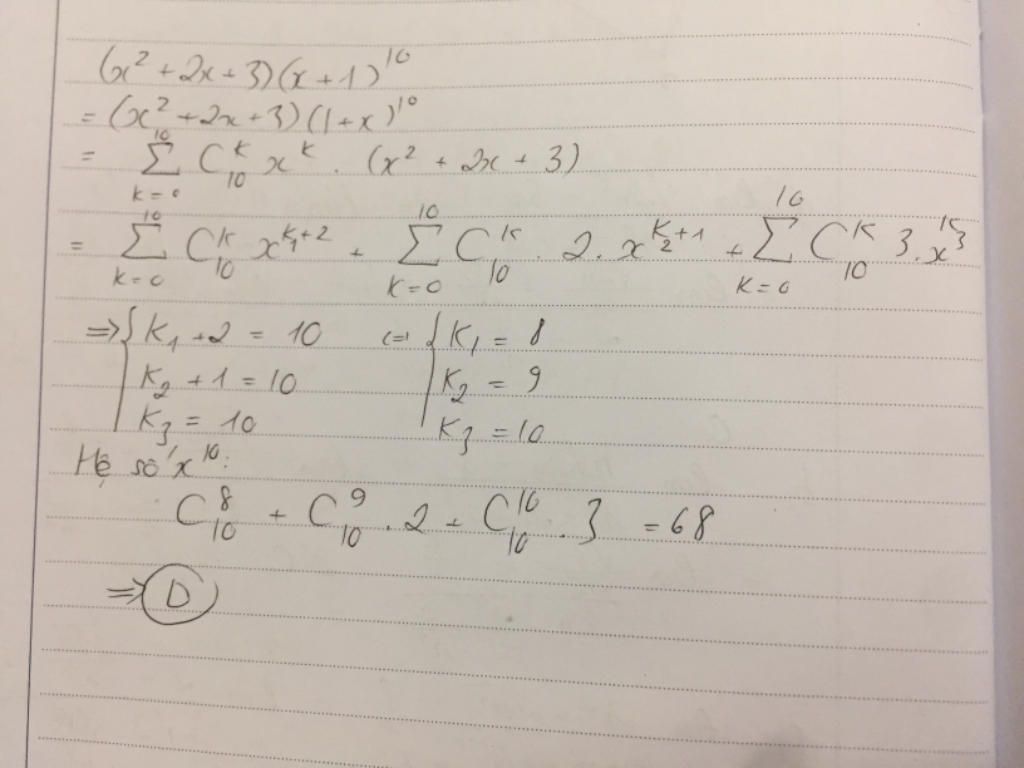 (x² + 2x + 3)(x + 1)¹⁰
= (x² + 2x + 3)(1 + x)¹⁰
= ∑_{k=0}^{10} C_{10}^{k} x^{k} . (x² + 2x + 3)
= ∑_{k=0}^{10} C_{10}^{k} x^{k₁+2} + ∑_{k=0}^{10} C_{10}^{k} . 2 . x^{k₂+1} + ∑_{k=0}^{10} C_{10}^{k} 3 . x^{k₃}
⇒ { k₁ + 2 = 10 ⇔ { k₁ = 8
k₂ + 1 = 10 k₂ = 9
k₃ = 10 k₃ = 10
Hệ số x¹⁰:
C_{10}^{8} + C_{10}^{9} . 2 + C_{10}^{10} . 3 = 68
⇒ D